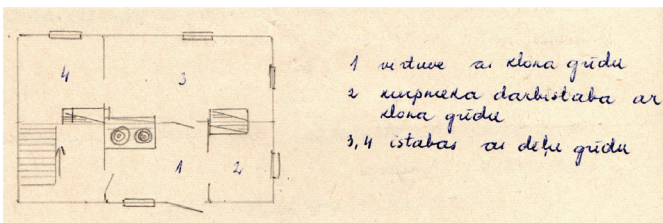 4
3
1
2
1 virtuve ar klona grīdu
2 kurpnieka darbistaba ar
klona grīdu
3,4 istabas ar dēļu grīdu